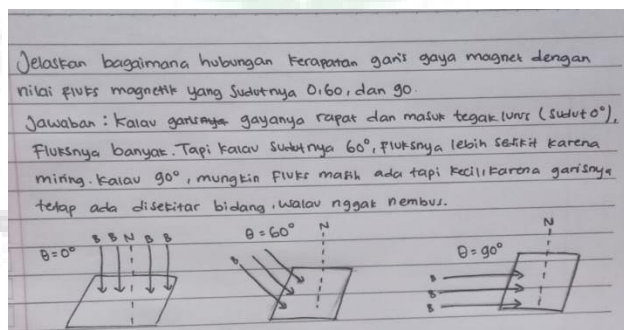 Jelaskan bagaimana hubungan kerapatan garis gaya magnet dengan
nilai fluks magnetik yang sudutnya 0,60, dan 90.
Jawaban : Kalau gayanya rapat dan masuk tegak lurus (sudut 0°),
Fluksnya banyak. Tapi kalau sudutnya 60°, fluksnya lebih sedikit karena
miring. Kalau 90°, mungkin fluks masih ada tapi kecil, karena garisnya
tetap ada disekitar bidang, walau nggak nembus.
θ = 0° B B N B B
θ = 60° N
B
θ = 90° N
B
B
B